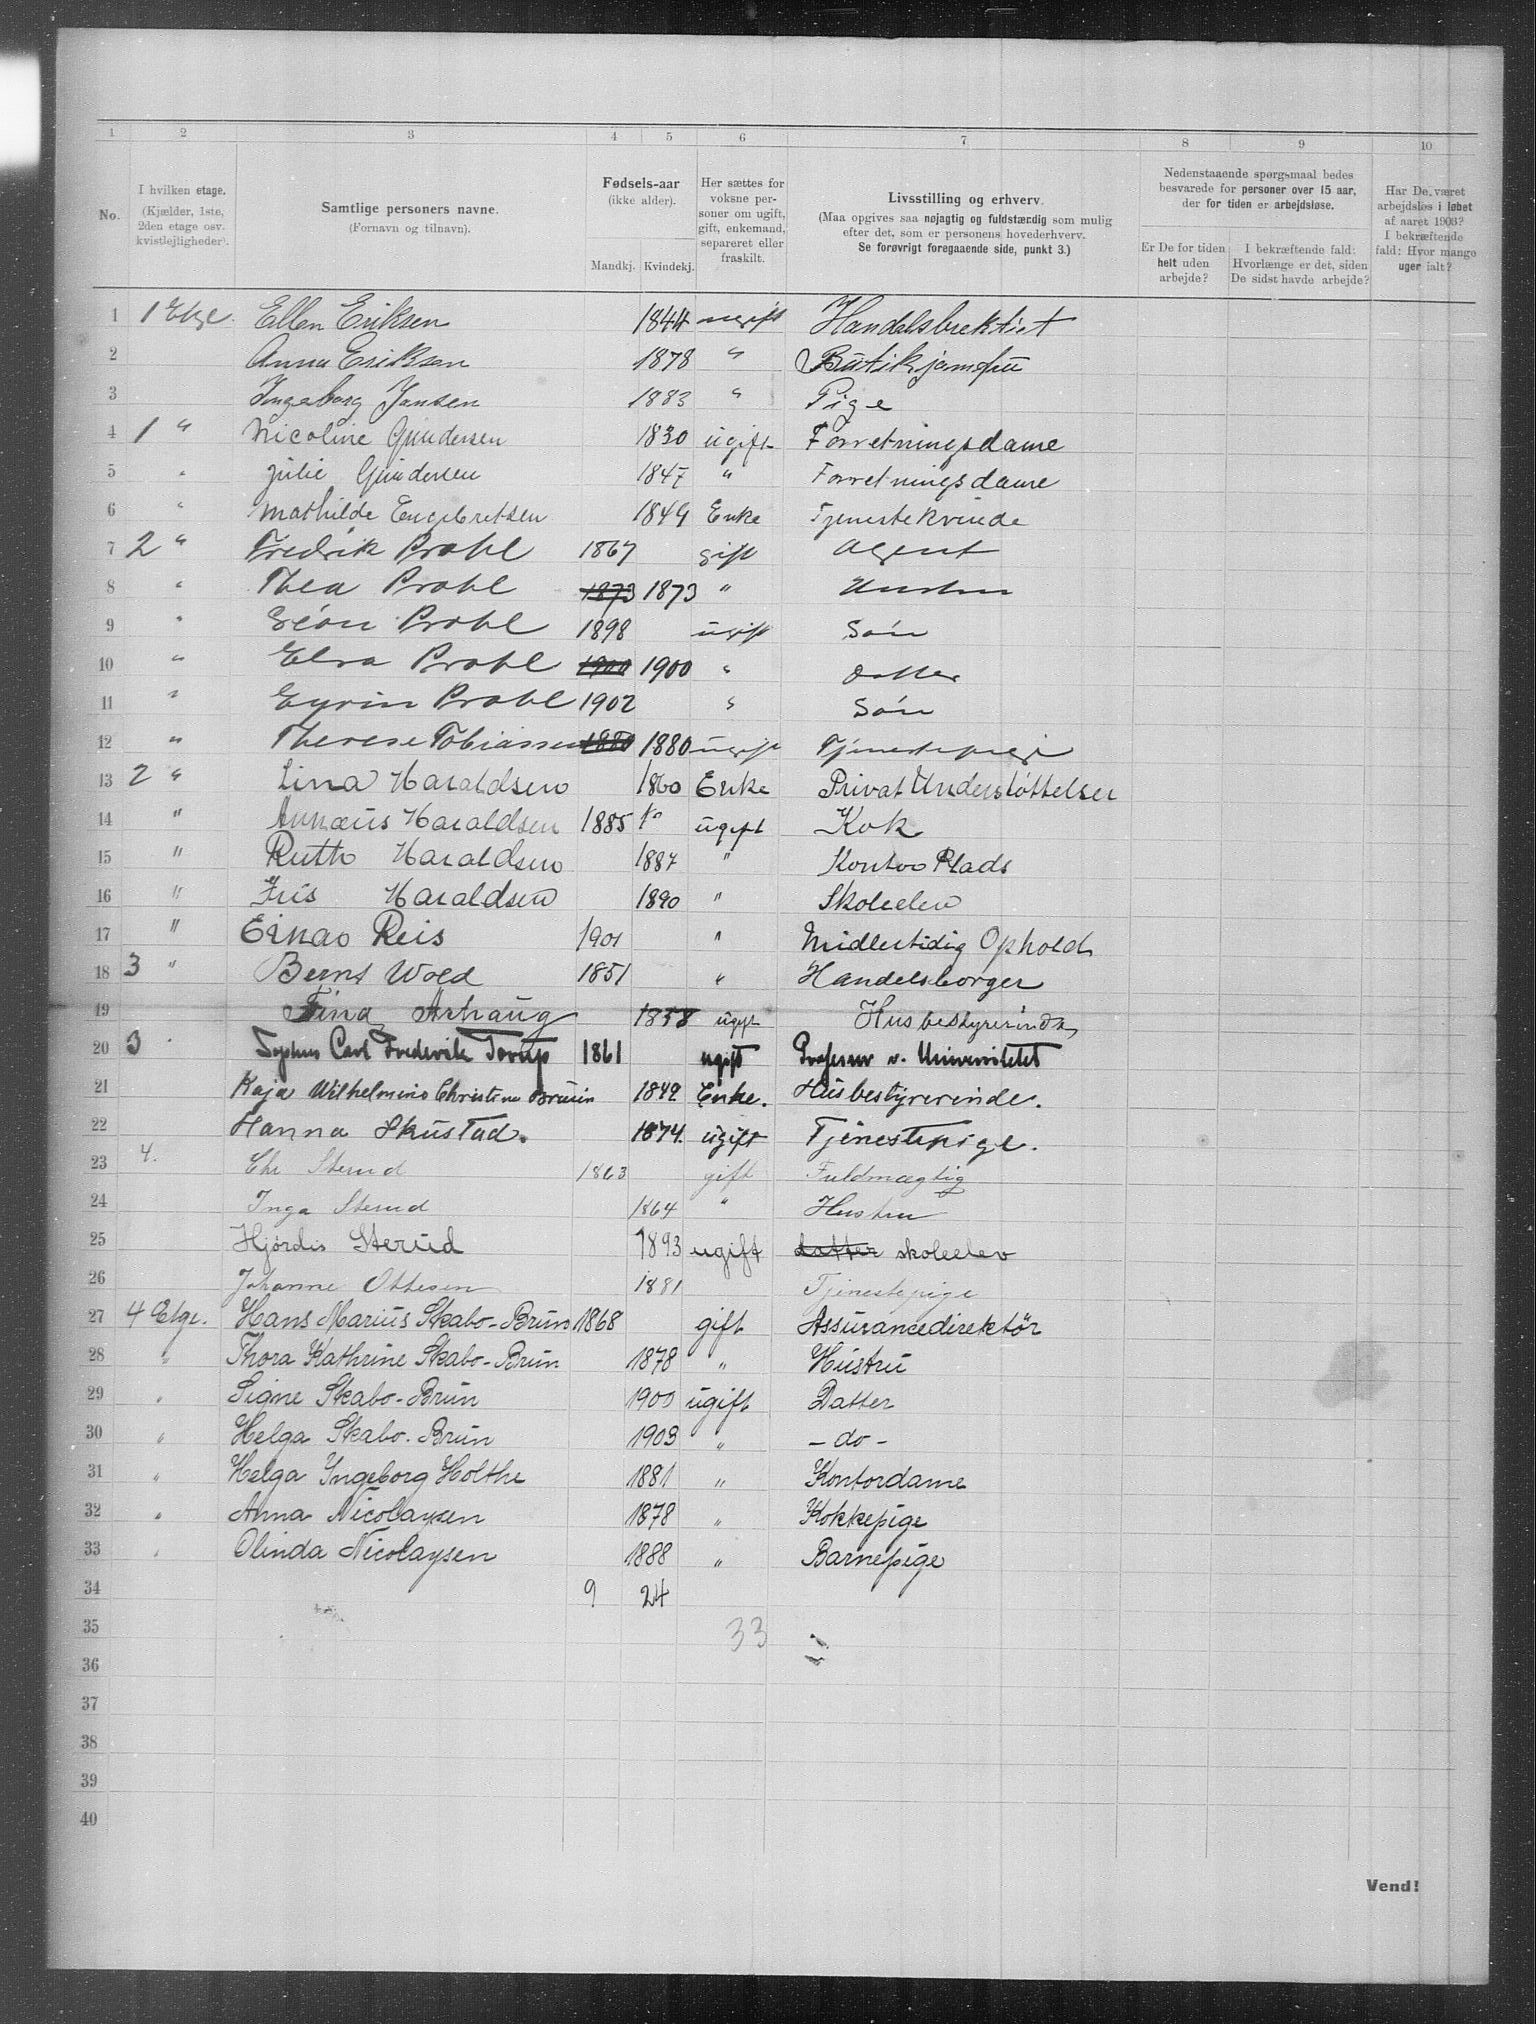 1 2 3 4 5 6 7 8 9 10
No. I hvilken etage. (Kjælder, 1ste, 2den etage osv. kvistlejligheder).
Samtlige personers navne. (Fornavn og tilnavn).
Fødsels-aar (ikke alder). Mandkj. Kvindekj.
Her sættes for voksne personer om ugift, gift, enkemand, separeret eller fraskilt.
Livsstilling og erhverv. (Maa opgives saa nøjagtig og fuldstændig som mulig efter det, som er personens hovederhverv. Se forøvrigt foregaaende side, punkt 3.)
Nedenstaaende spørgsmaal bedes besvarede for personer over 15 aar, der for tiden er arbejdsløse.
Er De for tiden helt uden arbejde?
I bekræftende fald: Hvorlænge er det, siden De sidst havde arbejde?
Har De været arbejdsløs i løbet af aaret 1903? I bekræftende fald: Hvor mange uger ialt?
1 1 Etge Ellen Eriksen 1844 ugift
2 Anna Eriksen 1878 " Butikjomfru
3 Ingeborg Jansen 1883 " Pige
4 1 " Nicoline Gundersen 1830 ugift Forretningsdame
5 " Julie Gundersen 1847 " Forretningsdame
6 " Mathilde Engebretsen 1849 Enke Tjenestekvinde
7 2 " Fredrik Prahl 1867 gift Agent
8 " Thea Prahl 1873 1873 " Hustru
9 " Prahl 1898 ugift Søn
10 " Prahl 1900 1900 " datter
11 " Prahl 1902 " Søn
12 " Therese Tobiassen 1880 1880 ugift Tjenestepige
13 2 " Lina Haraldsen 1860 Enke Privat Understøttelser
14 " Annæus Haraldsen 1885 ugift Kok
15 " Ruth Haraldsen 1887 " Kontor Plads
16 " Iris Haraldsen 1890 " Skoleelev
17 " Einar Reis 1901 " Midlertidig Ophold
18 3 " Bernt Wold 1851 " Handelsborger
19 Tina Arhaug 1858 ugift Husbestyrerinde
20 3 " Sophus Carl Frederik Torup 1861 ugift Professor v. Universitetet
21 Kaja Wilhelmine Christine Bruun 1842 Enke. Husbestyrerinde.
22 Hanna Skustad. 1874. ugift Tjenestepige.
23 4. Chr Sterud 1863 gift Fuldmægtig
24 Inga Sterud 1864 " Hustru
25 Hjørdis Sterud 1893 ugift datter skoleelev
26 Johanne Ottesen 1881 Tjenestepige
27 4 Etge. Hans Marius Skabo-Brun 1868 gift Assurancedirektør
28 " Thora Kathrine Skabo-Brun 1878 " Hustru
29 " Signe Skabo-Brun 1900 ugift Datter
30 " Helga Skabo-Brun 1903 " - do -
31 " Helga Ingeborg Holthe 1881 " Kontordame
32 " Anna Nicolaysen 1878 " Kokkepige
33 " Olinda Nicolaysen 1888 " Barnepige
34 9 24
35 33
36
37
38
39
40
Vend!